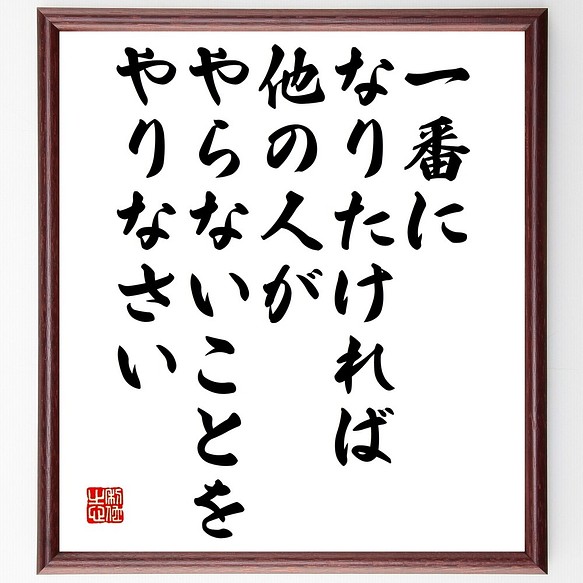 一番に
なりたければ
他の人が
やらないことを
やりなさい